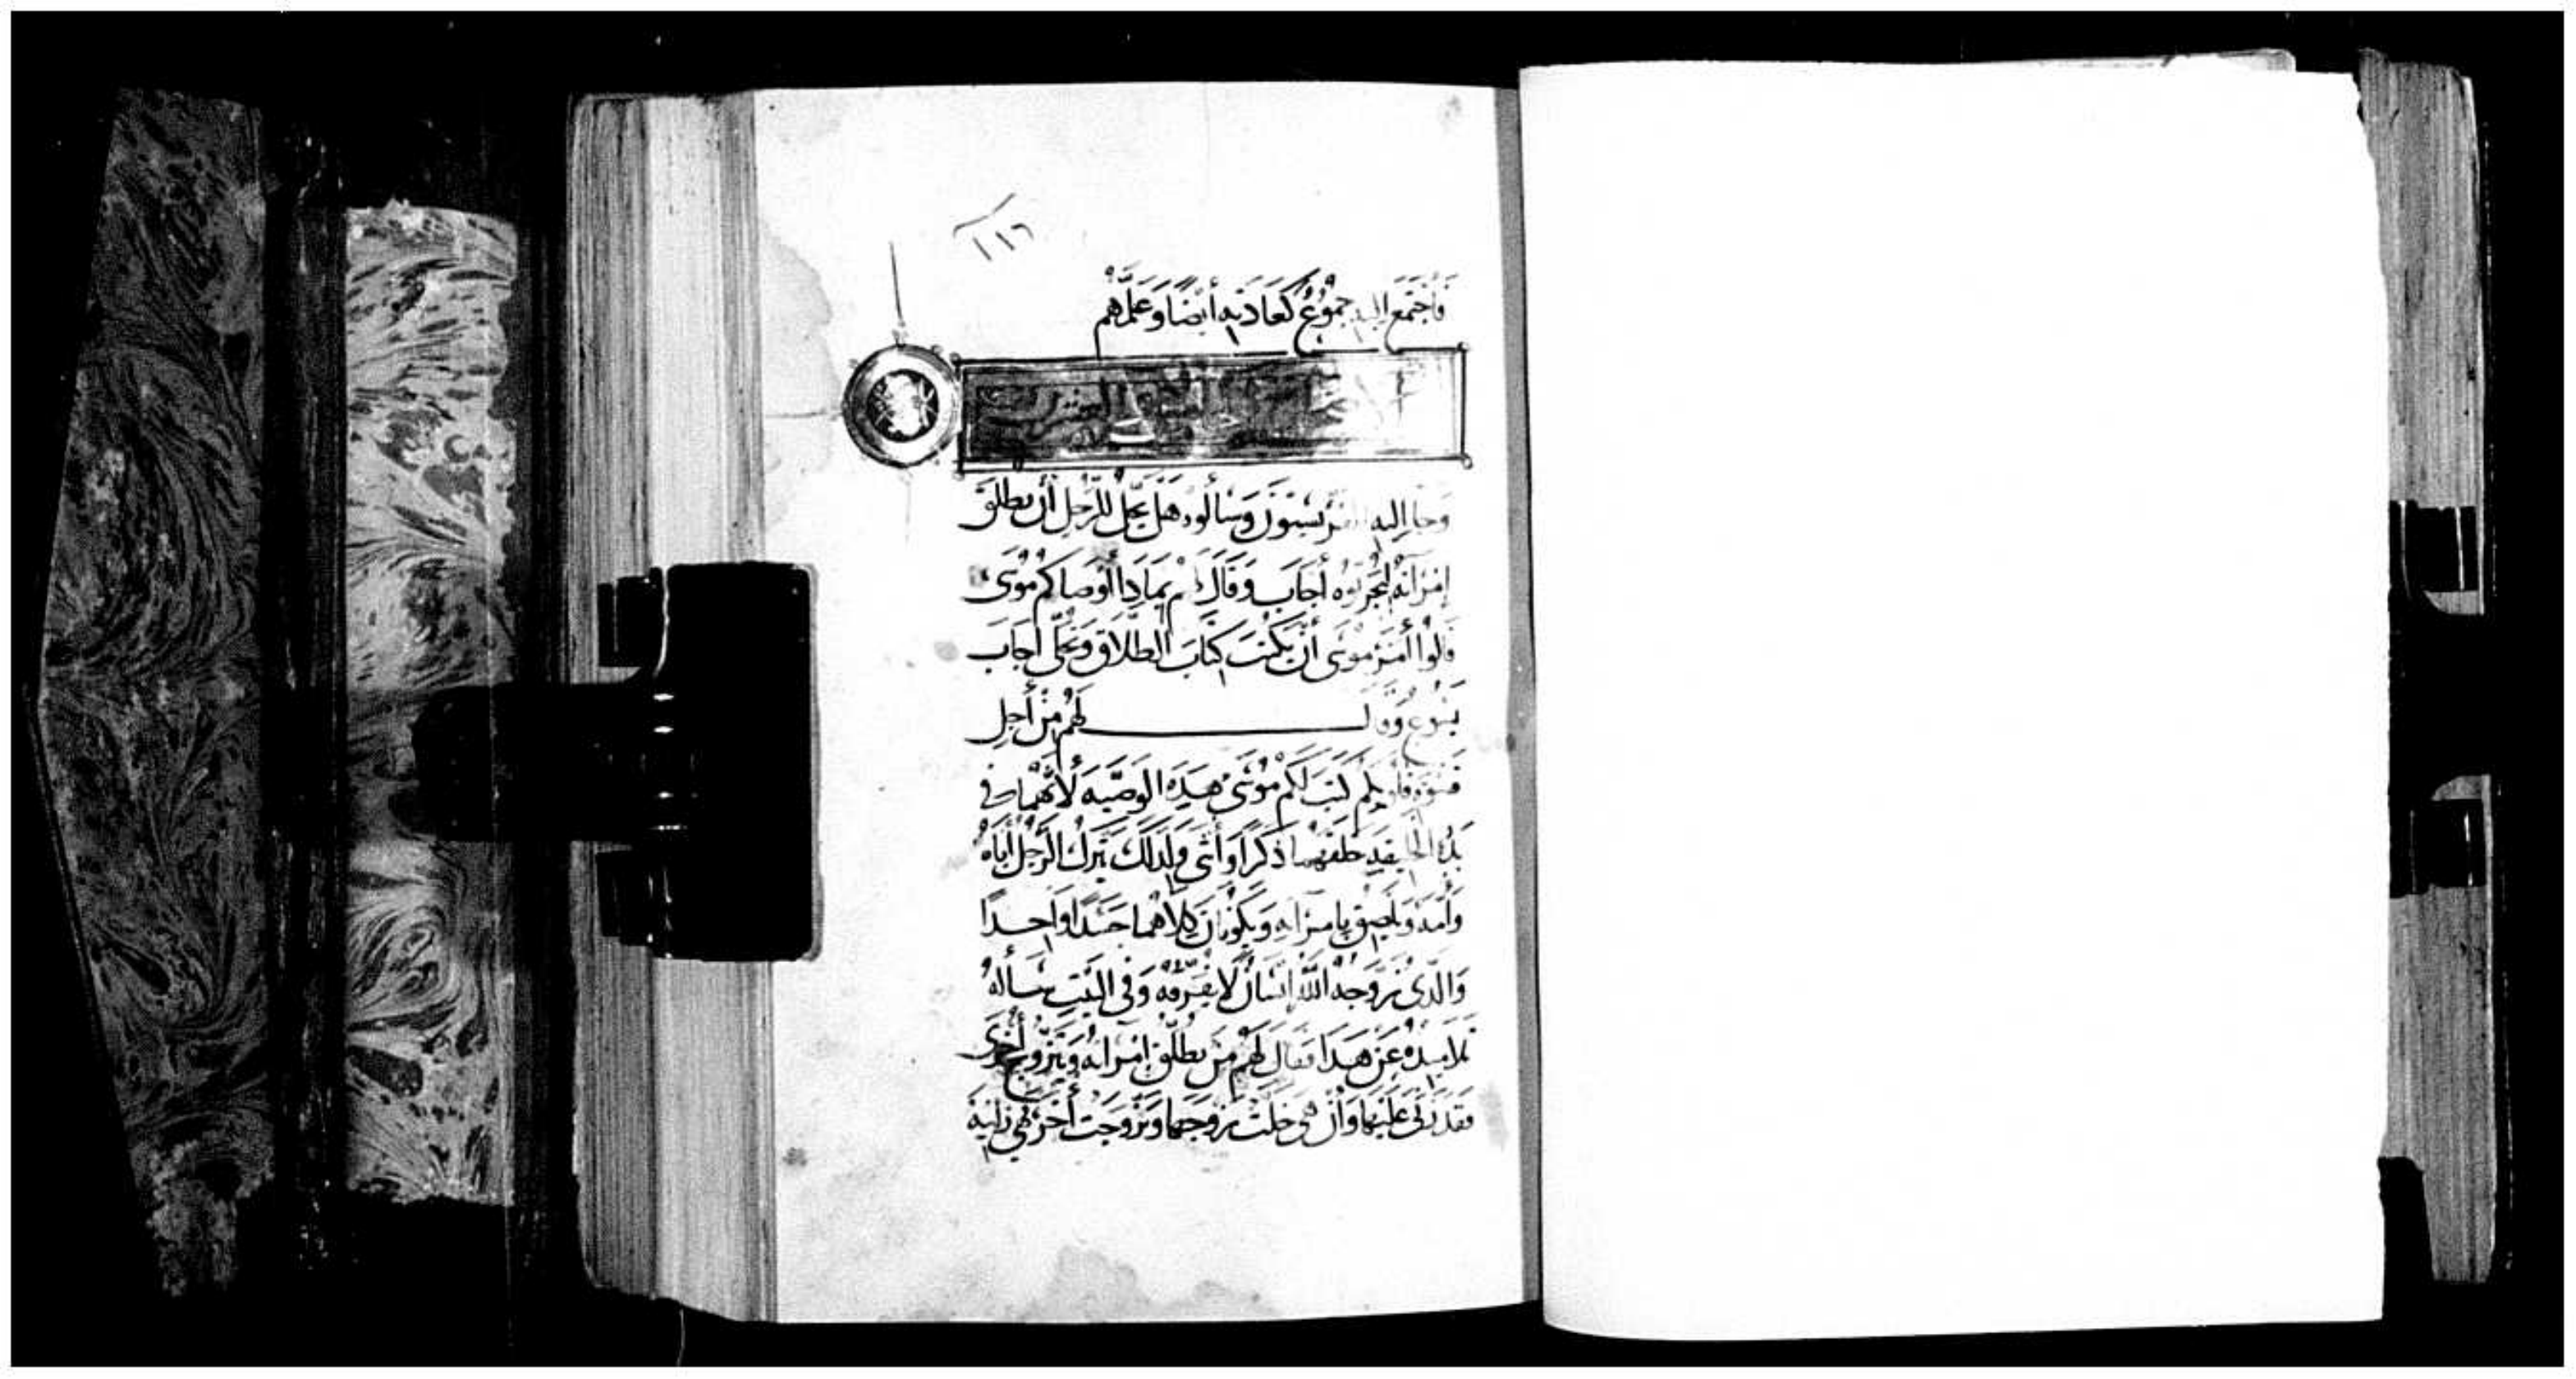 ١١٦
فَاجْتَمَعَ إليه جُمُوعٌ كَعَادَتِهِ أَيْضًا وَعَلَّمَهُمْ
وَجَا إليه الفريسيون وَسَألُوه هَل يَحِلُّ للرَّجُلِ أَن يُطلّقَ
إمْرَأتَهُ لِيُجَرِّبُوه أجَابَ وَقَالَ لهم بِمَاذَا أوْصَاكُم مُوسَى
قَالُوا أمَرَ مُوسَى أنْ يُكْتَبَ كِتَابَ الطَّلَاقِ وَتُخَلَّى أجَابَ
يَسُوع وقال لَهُم مِنْ أجلِ
قَسْوَة قلوبكم كَتَبَ لَكُم مُوسَى هَذِهِ الوَصِيّه لأنّهُمَا فى
بَدْءِ الخليقه خلقهما ذَكَرًا وَأنثَى وَلِذَلِكَ يَتْرُكُ الرَّجُلُ أبَاهُ
وَأمّه وَيلصِق بِامرأته وَيَكُونَانِ كِلَاهُمَا جَسَدًا وَاحِدًا
وَالَّذى زَوَّجَهُ اللَّهُ إنسَانٌ لَا يُفَرّقه وَفى البَيْتِ سَألَهُ
تلاميذه عَنْ هَذَا فَقَالَ لَهُم مَن يُطَلّق امْرَأتَهُ وَيَتَزَوَّج أُخْرَى
فَقَد زَنَى عَلَيْهَا وَإنْ هِىَ خَلَّتْ زَوجَهَا وَتَزَوجَتْ أخَر فهى زَانِيَة